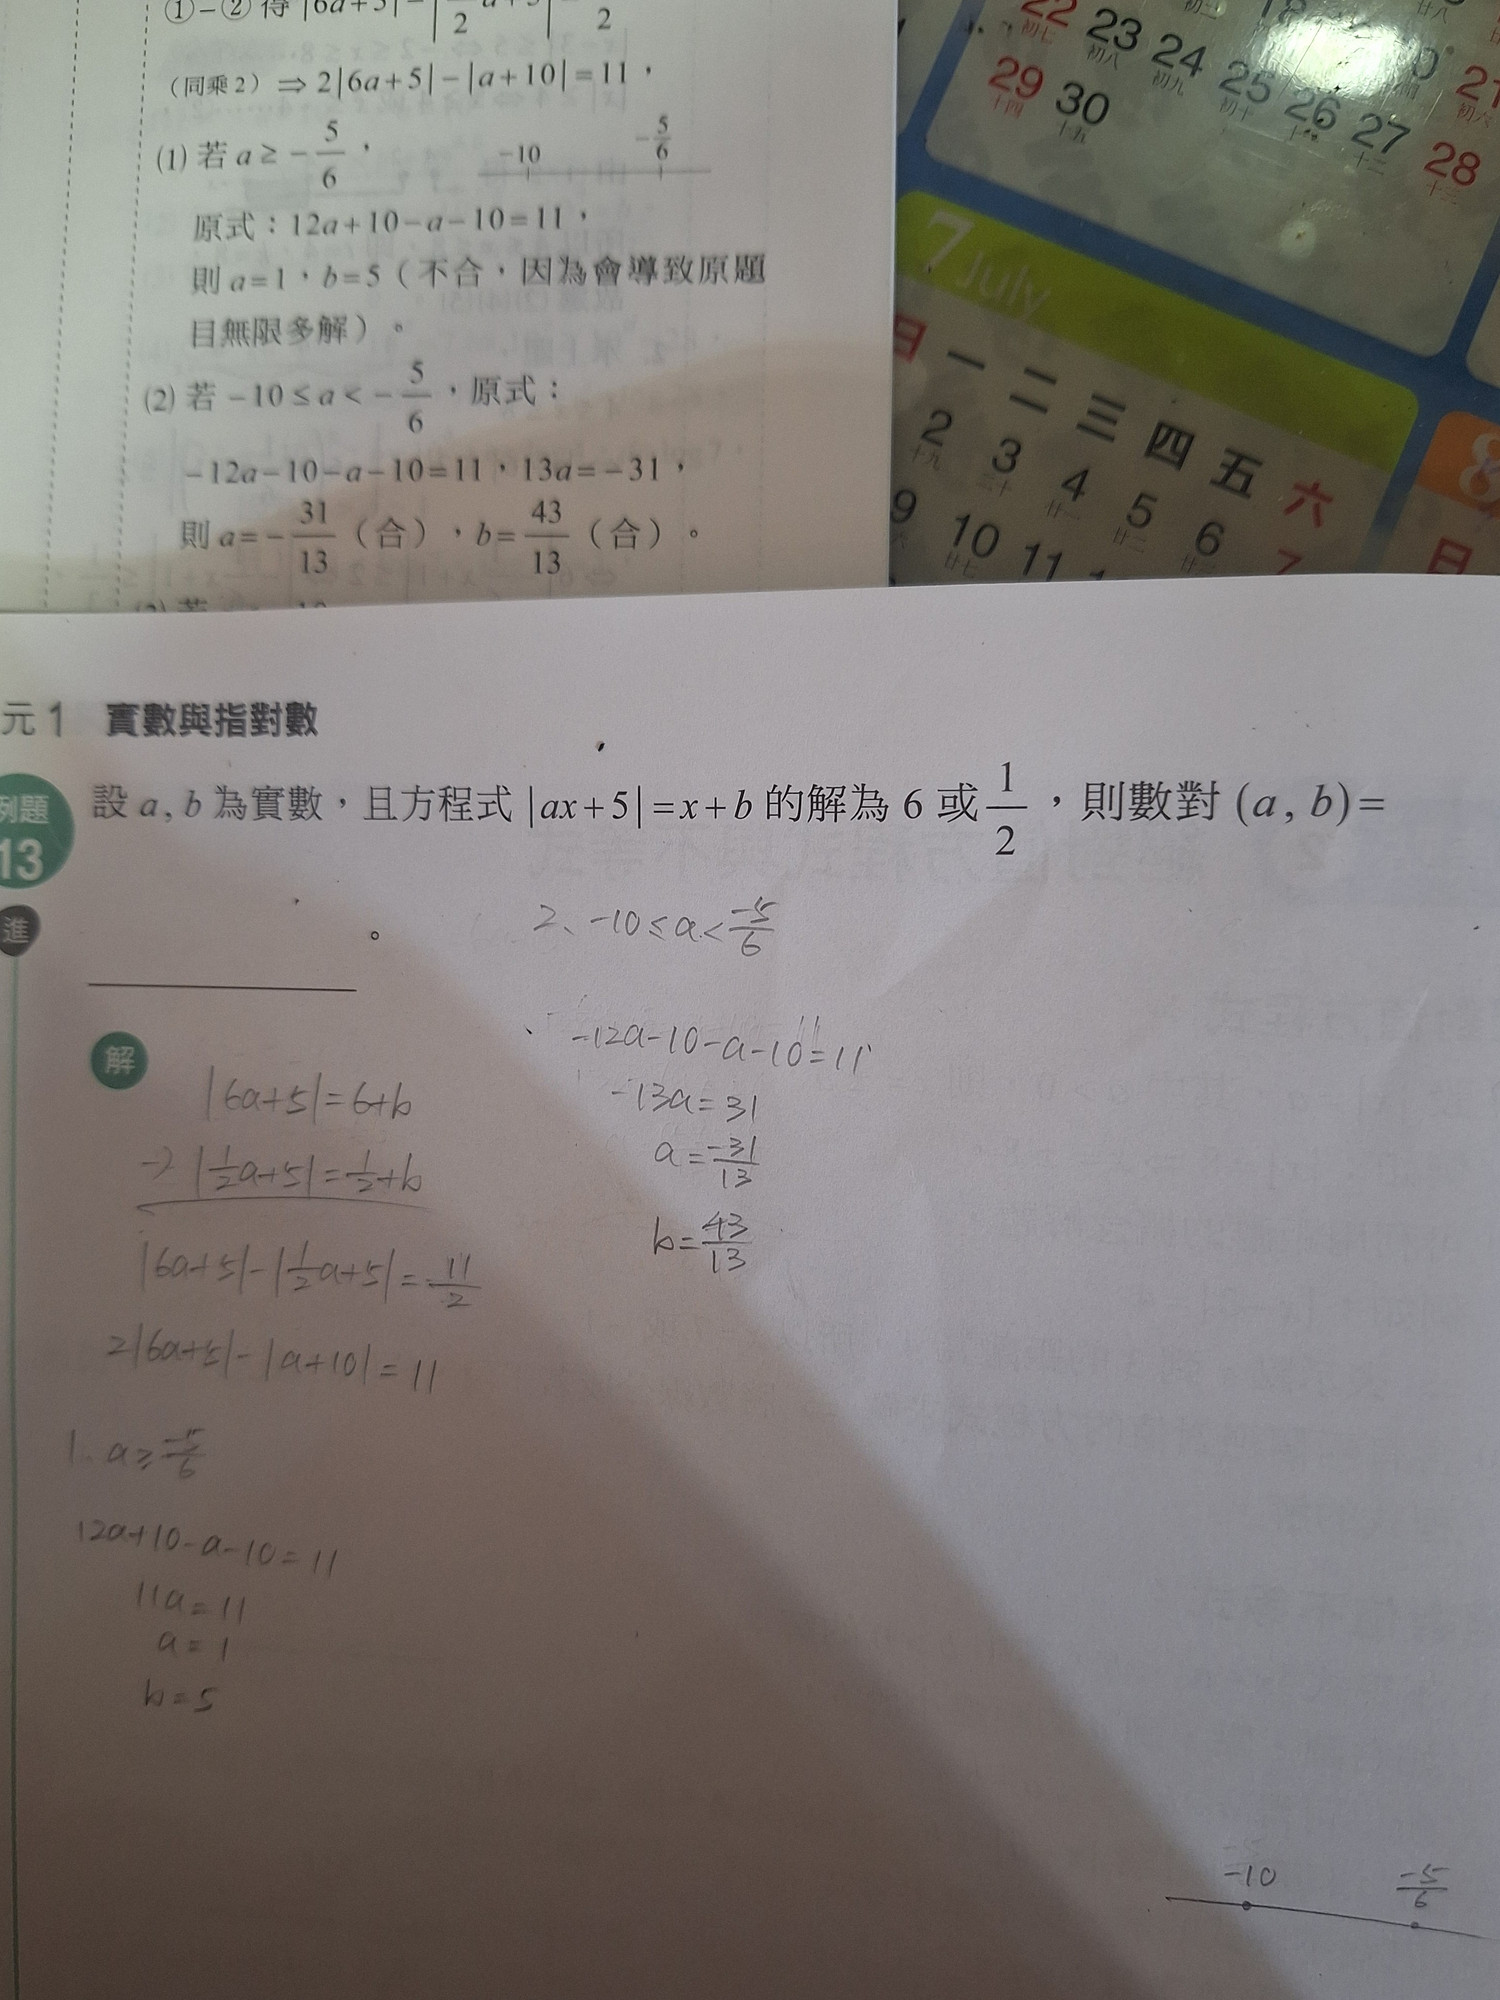 ①-② 得 |6a+5|-|
2
2
(同乘2) ⇒ 2|6a+5|-|a+10|=11,
(1) 若 a≥-5/6,
-10 -5/6
原式:12a+10-a-10=11,
則 a=1,b=5(不合,因為會導致原題
目無限多解)。
(2) 若 -10≤a<-5/6,原式:
-12a-10-a-10=11,13a=-31,
則 a=-31/13(合),b=43/13(合)。
22 23 24 25 26 27 28
初七 初八 初九 初十 十二 十三
29 30
十四 十五
21
初六
廿八
7 July
日 一 二 三 四 五 六
2 3 4 5 6 7
十九 二十 廿一 廿二
9 10 11
廿七
8
日
元1 實數與指對數
例題
13
進
設 a, b 為實數,且方程式 |ax+5|=x+b 的解為 6 或 1/2,則數對 (a, b)=
。
解
|6a+5|=6+b
-) |1/2a+5|=1/2+b
|6a+5|-|1/2a+5|=11/2
2|6a+5|-|a+10|=11
1. a≥-5/6
12a+10-a-10=11
11a=11
a=1
b=5
2、-10≤a<-5/6
-12a-10-a-10=11
-13a=31
a=-31/13
b=43/13
-10 -5/6